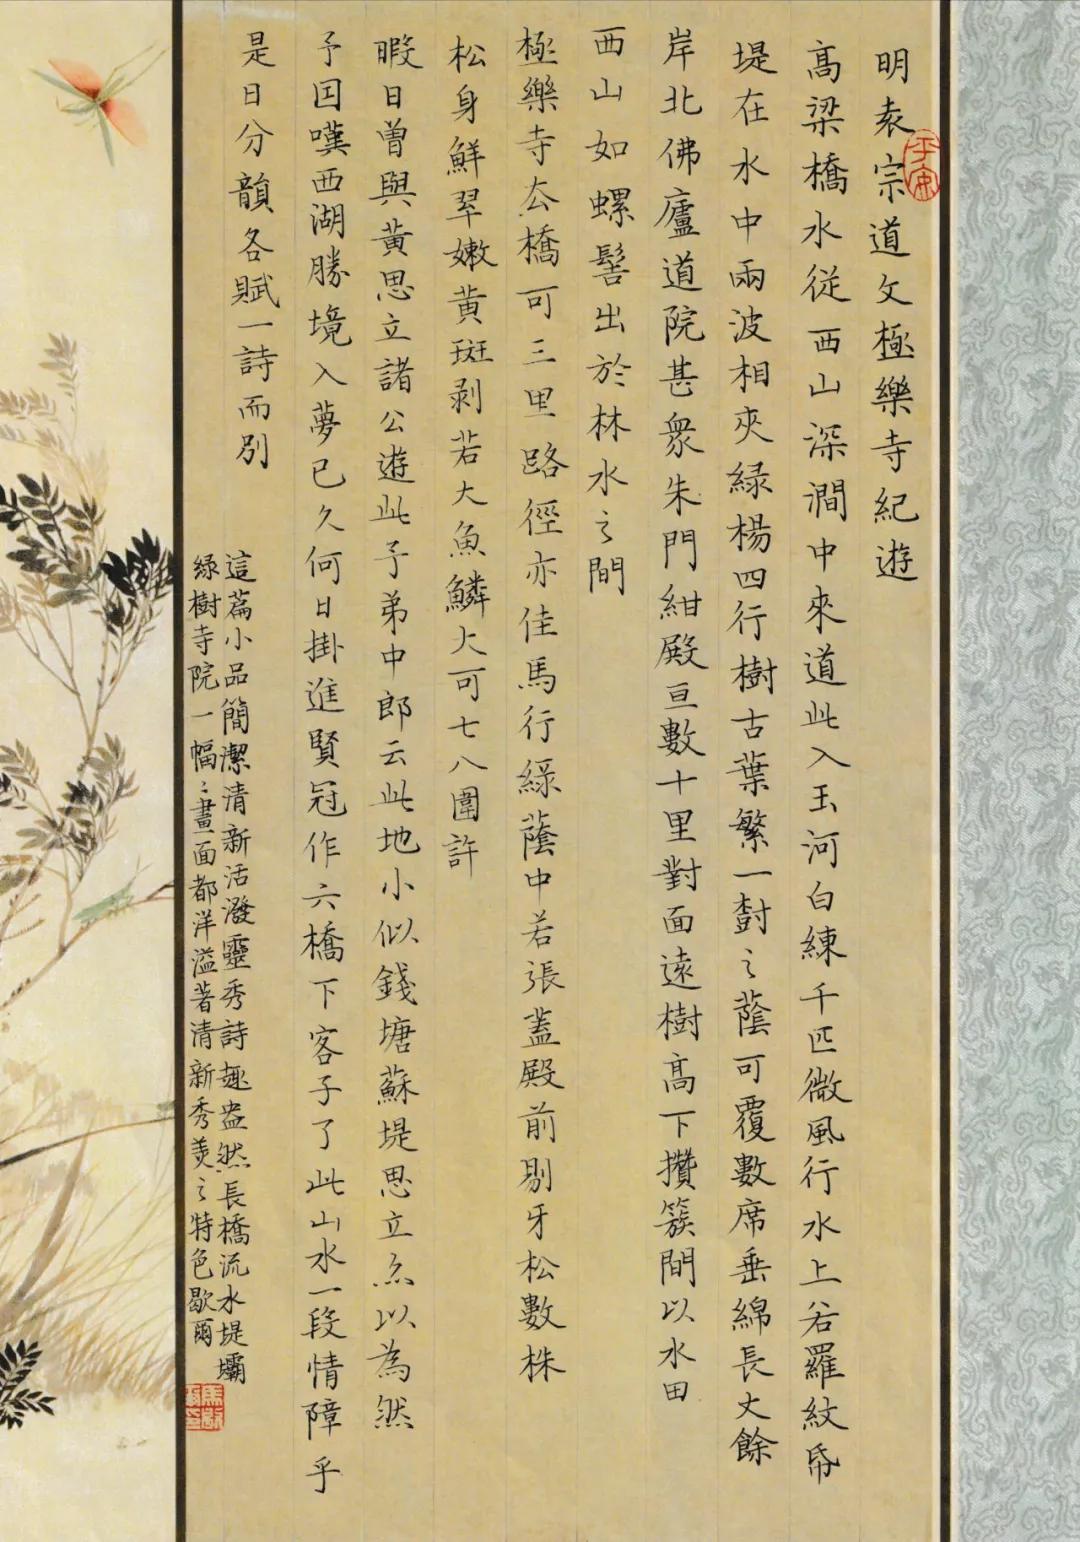 明袁宗道文極樂寺紀遊
高梁橋水従西山深澗中來道此入玉河白練千匹微風行水上若羅紋帋
堤在水中兩波相夾緑楊四行樹古葉繁一樹之蔭可覆數席垂綿長丈餘
岸北佛廬道院甚衆朱門紺殿亘數十里對面遠樹高下攢簇間以水田
西山如螺髻出於林水之間
極樂寺去橋可三里路徑亦佳馬行緑蔭中若張蓋殿前剔牙松數株
松身鮮翠嫩黄斑剥若大魚鱗大可七八圍許
暇日曽與黄思立諸公遊此予弟中郎云此地小似錢塘蘇堤思立亦以為然
予因嘆西湖勝境入夢已久何日掛進賢冠作六橋下客子了此山水一段情障乎
是日分韻各賦一詩而别
這篇小品簡潔清新活潑靈秀詩趣盎然長橋流水堤壩
緑樹寺院一幅〻畫面都洋溢著清新秀美之特色歇爾
平安